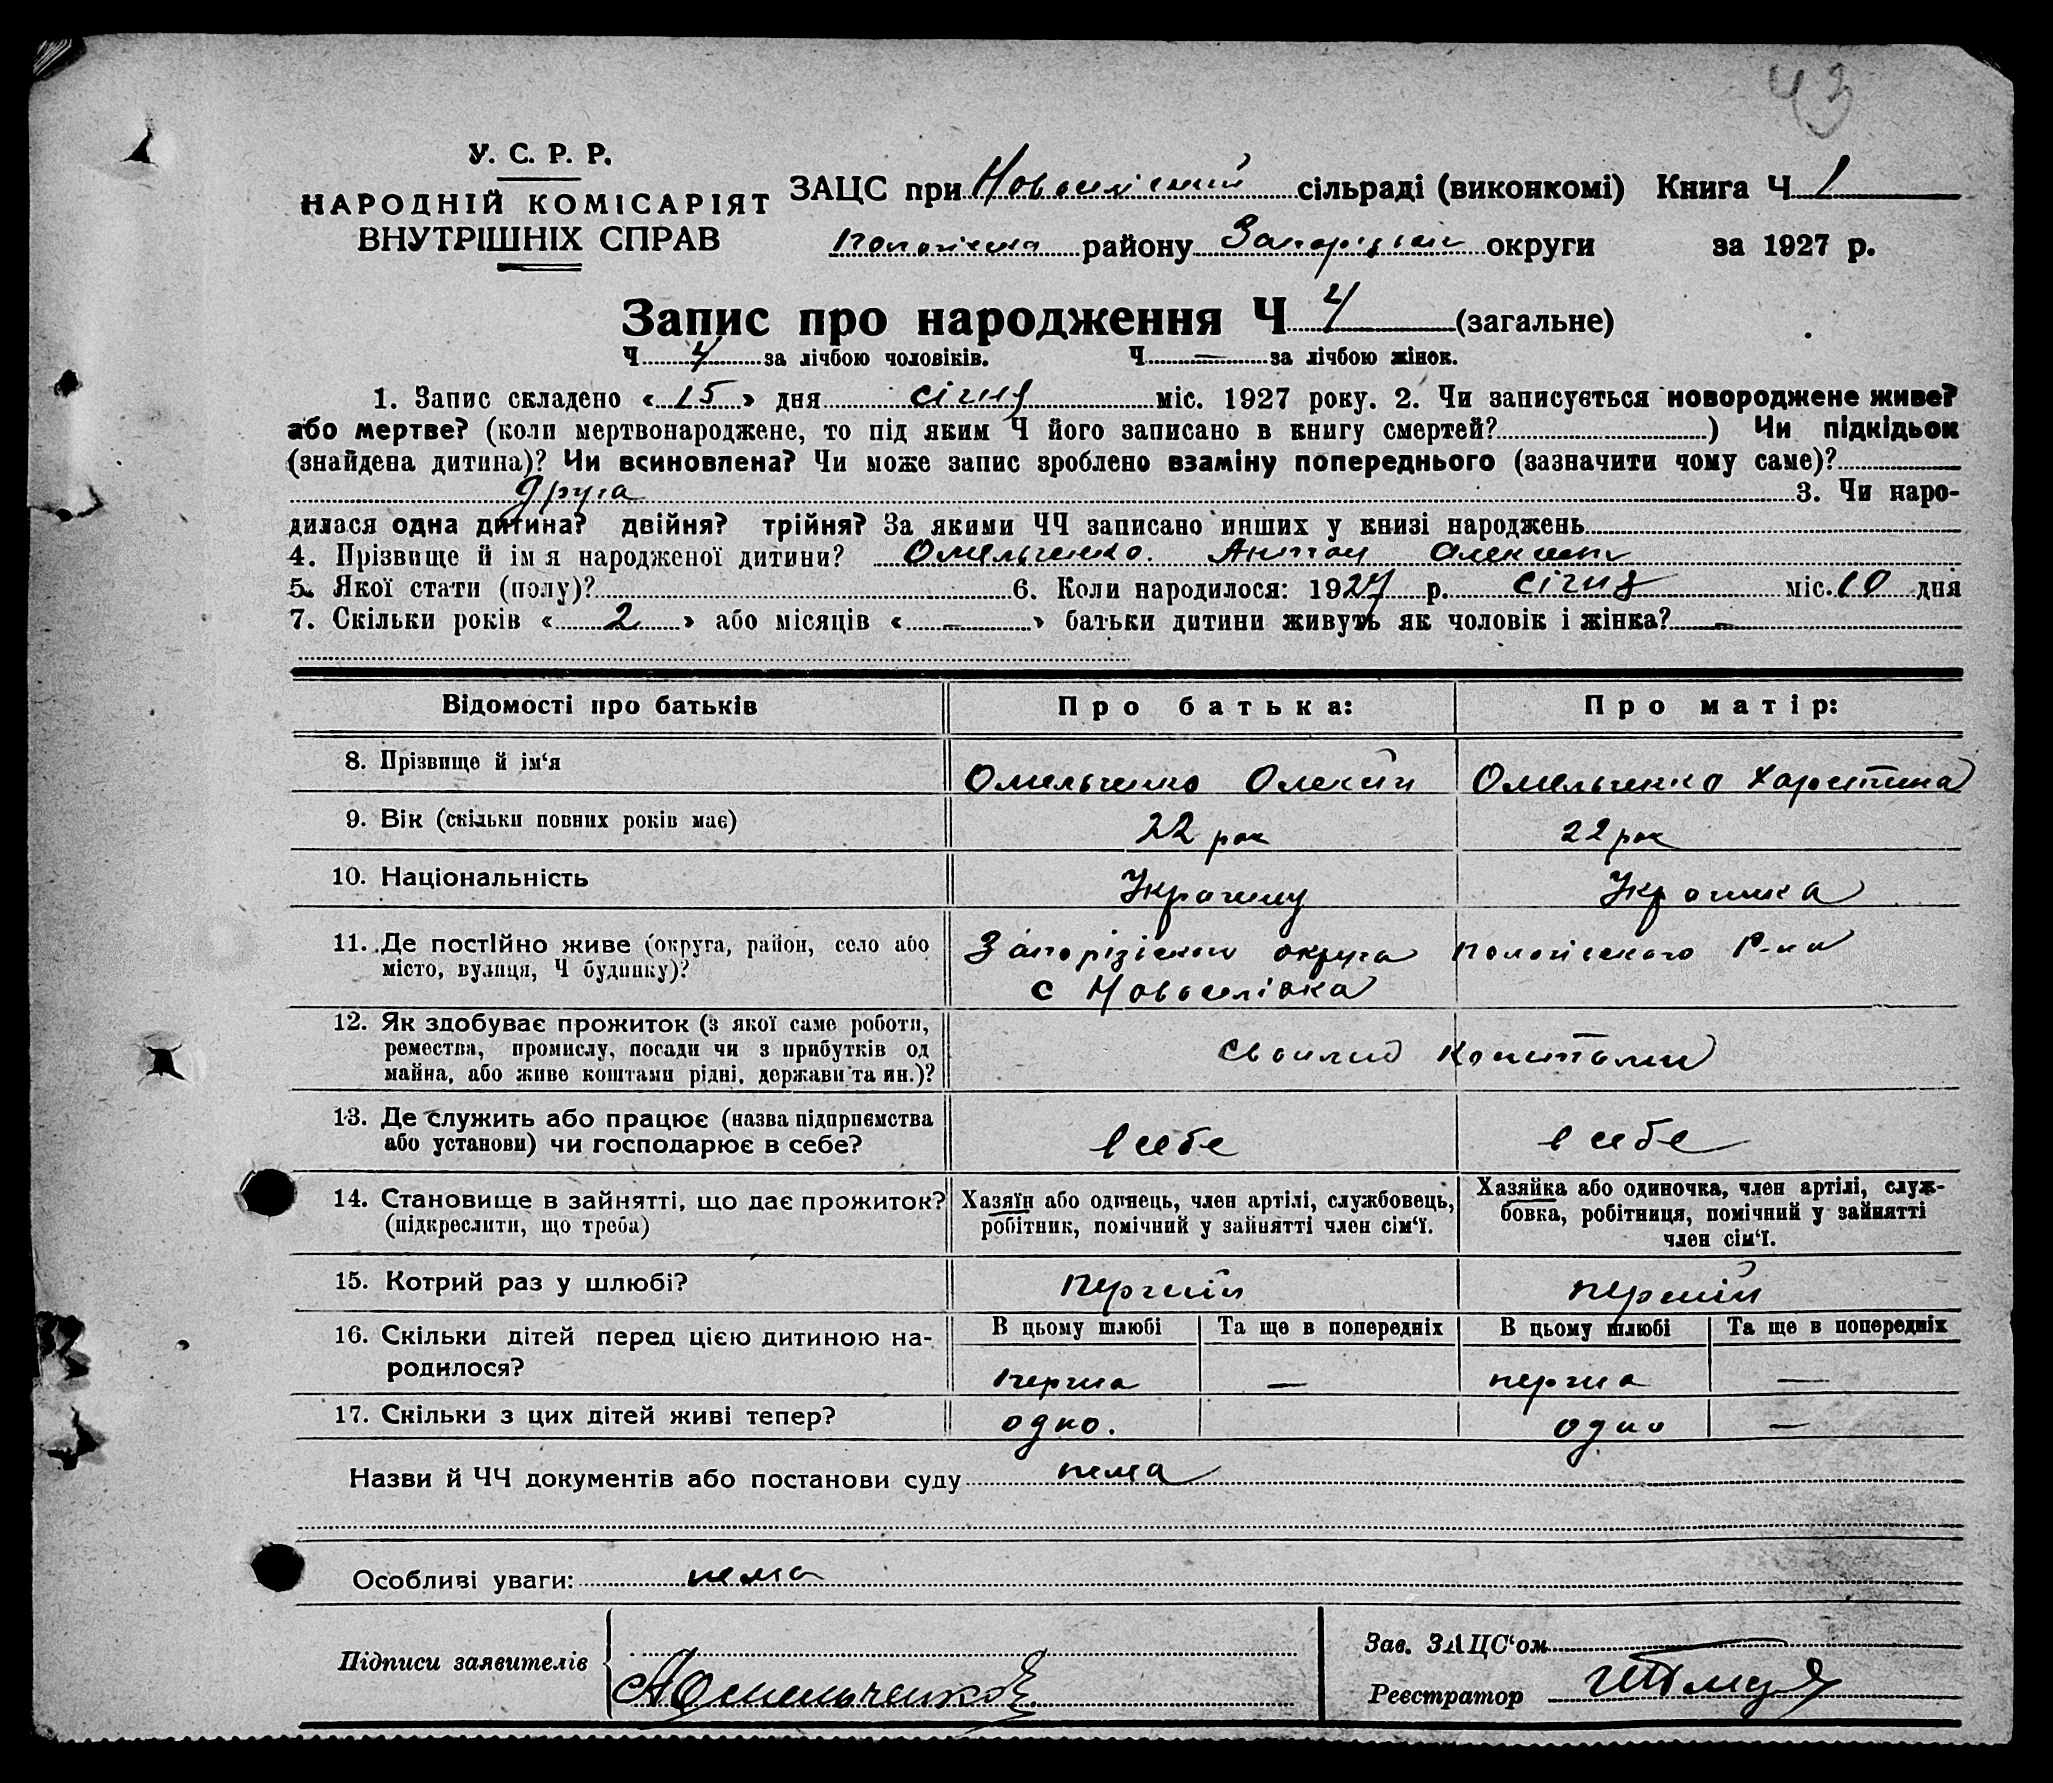 43
У. С. Р. Р.
НАРОДНІЙ КОМІСАРІЯТ
ВНУТРІШНІХ СПРАВ
ЗАЦС при сільраді (виконкомі) Книга Ч 1
району округи за 1927 р.
Запис про народження Ч 4 (загальне)
Ч 4 за лічбою чоловіків. Ч — за лічбою жінок.
1. Запис складено « 15 » дня січня міс. 1927 року. 2. Чи записується новороджене живе?
або мертве? (коли мертвонароджене, то під яким Ч його записано в книгу смертей? ) Чи підкідьок
(знайдена дитина)? Чи всиновлена? Чи може запис зроблено взаміну попереднього (зазначити чому саме)?
друга 3. Чи наро-
дилася одна дитина? двійня? трійня? За якими ЧЧ записано инших у книзі народжень
4. Прізвище й ім я народженої дитини? Омельченко. Антон
5. Якої стати (полу)? 6. Коли народилося: 1927 р. січня міс. 10 дня
7. Скільки років « 2 » або місяців « — » батьки дитини живуть як чоловік і жінка? —
Відомості про батьків Про батька: Про матір:
8. Прізвище й ім'я Омельченко Олексій Омельченко Харитина
9. Вік (скільки повних років має) 22 рок 22 рок
10. Національність Українка
11. Де постійно живе (округа, район, село або
місто, вулиця, Ч будинку)?
округа Пологівського Р-на
с Новоселівка
12. Як здобуває прожиток (з якої саме роботи,
ремества, промислу, посади чи з прибутків од
майна, або живе коштами рідні, держави та ин.)?
своими
13. Де служить або працює (назва підприємства
або установи) чи господарює в себе?
в себе в себе
14. Становище в зайнятті, що дає прожиток?
(підкреслити, що треба)
Хазяїн або одинець, член артілі, службовець,
робітник, помічний у зайнятті член сім'ї.
Хазяйка або одиночка, член артілі, служ-
бовка, робітниця, помічний у зайнятті
член сім'ї.
15. Котрий раз у шлюбі? перший перший
16. Скільки дітей перед цією дитиною на-
родилося?
В цьому шлюбі Та ще в попередніх В цьому шлюбі Та ще в попередніх
перша — перша —
17. Скільки з цих дітей живі тепер? одно. одно —
Назви й ЧЧ документів або постанови суду нема
Особливі уваги: нема
Підписи заявителів
АОмельченко
Зав. ЗАЦС'ом
Реєстратор